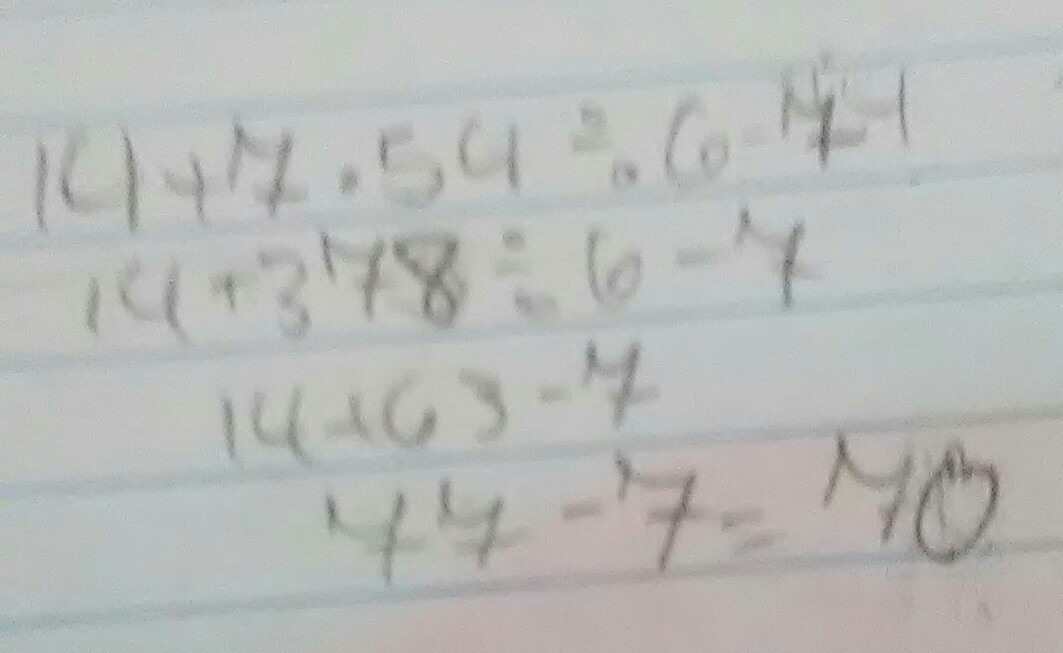 14+7·54÷6-7·1
14+378÷6-7
14+63-7
77-7=70